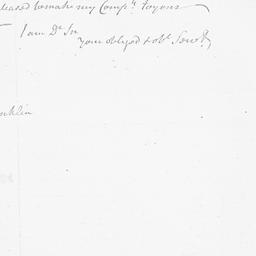 pleased to make my Comp.ts to yours
I am Dr Sir
your obliged & obt Servt
nklin